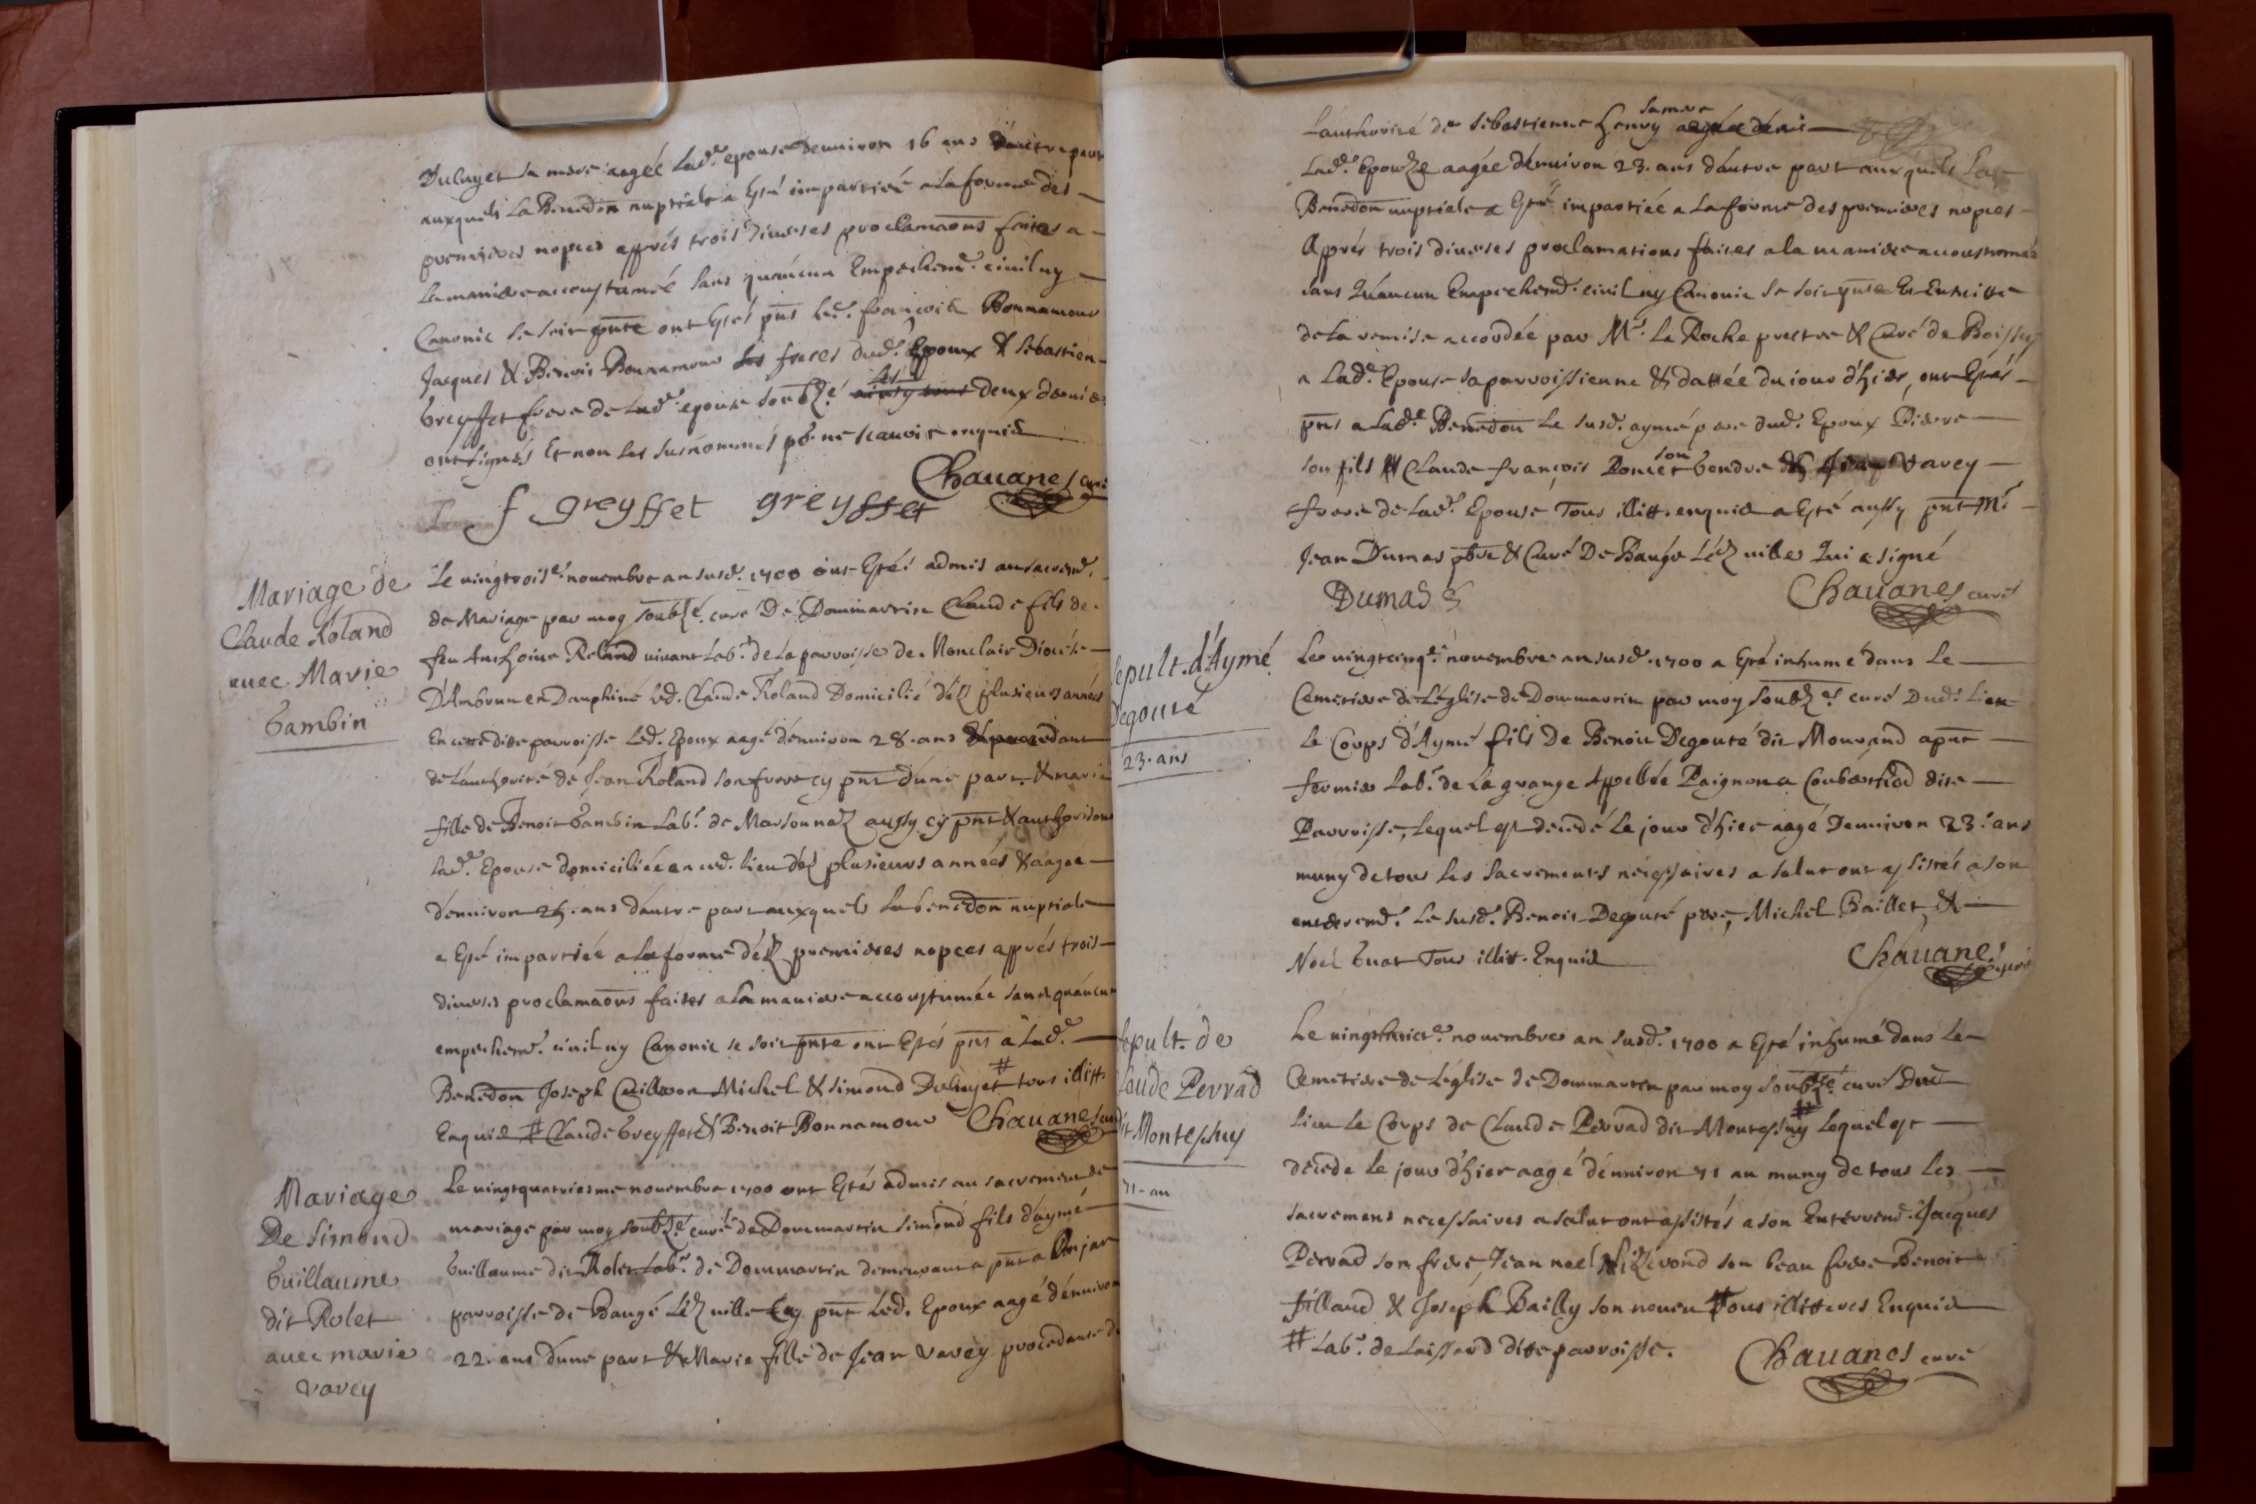 Duluyet sa mere aagée lad.e epouse d'enuiron 16 ans d'autre part
auxquels La Benedon nuptiale a Esté impartiée a la forme des
premieres nopces apprés trois diuerses proclamaons faites a
la maniere accoustumée sans qu'aucun Empechem.t ciuil ny
Canonic se soit pnte ont Estés pns led. françois Bonnamour
Jacques & Benoit Bonnamour freres dud. Epoux & sebastien
Greyffet frere de lad.e epouse soubz.é les deux derniers
ont signés Et non les susnommés pr ne scauoir enquis
Chauanes curé
f greyffet greyffet
Mariage de
Claude Roland
auec Marie
Gambin
Le uingtrois.e nouembre an susd. 1700 ont Esté admis au sacrem.t
de Mariage par moy soubz.é curé De Dommartin Claude fils de
feu Anthoine Roland uiuant Lab.r de la parroisse de Monclair Diocese
D'Ambrun en Dauphiné led. Claude Roland Domicilié déz plusieurs années
En cette dite parroisse Led. Epoux aagé d'enuiron 28. ans
de l'authorité de Jean Roland son frere cy pnt d'une part & marie
fille de Benoit Gambin Lab.r de Marsonnaz aussy cy pnt & authorisant
lad.e Epouse domiciliée en ced. lieu déz plusieurs années & aagée
d'enuiron ans d'autre part auxquels la benedon nuptiale
a Esté impartiée a la forme déz premieres nopces apprés trois
diuerses proclamaons faites a la maniere accoustumée sans qu'aucun
empechem.t ciuil ny Canonic se soit pnte ont Estés pns a lad.e
Benedon Joseph Michel & simond Duluyet # tous illitt.
Enquis # Claude Greyffet & Benoit Bonnamour Chauanes curé
Mariage
De simond
Guillaume
dit Rolet
auec marie
Varey
Le uingtquatriesme nouembre 1700 ont Estés admis au sacrement de
mariage par moy soubz.é curé de Dommartin simond fils d'aymé
Guillaume dit Rolet Lab.r de Dommartin demeurant a pnt a
parroisse de Baugé Léz uille Cy pnt Led. Epoux aagé d'enuiron
22. ans d'une part & Marie fille de Jean Varey procedante de
L'authorité de sebastienne henry sa mere
Lad.e Epouze aagée d'enuiron 23. ans d'autre part auxquels La
Benedon nuptiale a Esté impartiée a la forme des premieres nopces
Apprés trois diuerses proclamations faites a la maniere accoustumée
sans qu'aucun Empechem.t ciuil ny Canonic se soit pnte Et Ensuitte
de la remise accordée par M.r La Roche prestre & Curé de Boissey
a Lad.e Epouse sa parroissienne & dattée du iour d'hier, ont Estés
pns a lad.e Benedon Le susd. aymé pere dud. Epoux Pierre
son fils & Claude françois Poncet son Gendre & Varey
frere de lad.e Epouse Tous illitt. enquis a Esté aussy pnt M.e
Jean Dumas pbre & Curé De Baugé Léz uille Qui a signé
Dumas Chauanes curé
Sepult. d'Aymé
Degouté
23. ans
Le uingtcinq.e nouembre an susd. 1700 a Esté inhumé dans Le
Cemetiere de L'église de Dommartin par moy soubz.é curé Dud. Lieu
Le Corps d'Aymé fils De Benoit Degouté dit Mourand apnt
fermier Lab.r de La grange Appellée Paignon a Couberthod dite
Parroisse, Lequel est decedé Le jour d'hier aagé D'enuiron 23. ans
muny de tous Les Sacrements necessaires a salut ont assistés a son
enterrem.t Le susd. Benoit Degouté pere, Michel Baillet &
Noel Guat Tous illitt. Enquis
Chauanes curé
Sepult. de
Claude Perrad
dit Montessuy
71. an
Le uingthuict.e nouembre an susd. 1700 a Esté inhumé dans Le
Cemetiere de L'église de Dommartin par moy soubz.é curé Dud
Lieu Le Corps de Claude Perrad dit Montessuy # Lequel est
decede Le jour d'hier aagé d'enuiron 71 an muny de tous Les
sacremens necessaires a salut ont assistés a son Enterrem.t Jacques
Perrad son frere, Jean noel son beau frere Benoit
fillaud & Joseph Bailly son neueu Tous illitteres Enquis
# Lab.r de Loissard ditte parroisse.
Chauanes curé